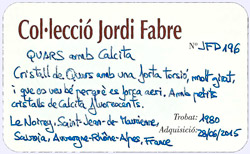 Col·lecció Jordi Fabre
Nº JFD196
QUARS amb Calcita
Cristall de Quars amb una forta torsió, molt girat,
i que es veu bé perquè es força aeri. Amb petits
cristalls de Calcita fluorescents.
Le Noirey, Saint-Jean-de-Maurienne,
Savoia, Auvergne-Rhône-Alpes, France
Trobat: 1980
Adquisició: 28/06/2015